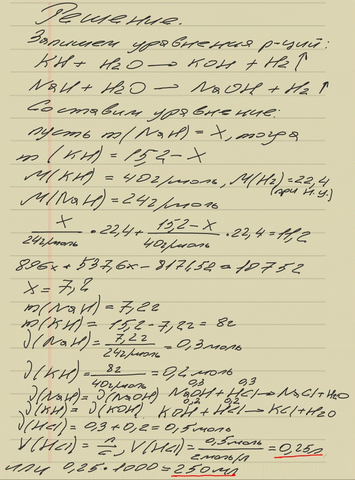 Решение.
Запишем уравнения р-ций:
KH + H2O → KOH + H2↑
NaH + H2O → NaOH + H2↑
Составим уравнение:
пусть m(NaH) = X, тогда
m(KH) = 15,2 - X
M(KH) = 40г/моль, M(H2) = 22,4
(при н.у.)
M(NaH) = 24г/моль
X/24г/моль · 22,4 + 15,2-X/40г/моль · 22,4 = 11,2
896x + 537,6x - 8171,52 = 10752
X = 7,2
m(NaH) = 7,2г
m(KH) = 15,2 - 7,2г = 8г
ν(NaH) = 7,2г/24г/моль = 0,3моль
ν(KH) = 8г/40г/моль = 0,2 моль
ν(NaH) = ν(NaOH) 0,3 NaOH + 0,3 HCl → NaCl + H2O
ν(KH) = ν(KOH) 0,2 KOH + 0,2 HCl → KCl + H2O
ν(HCl) = 0,3 + 0,2 = 0,5моль
V(HCl) = n/c, V(HCl) = 0,5моль/2моль/л = 0,25л
или 0,25 · 1000 = 250мл